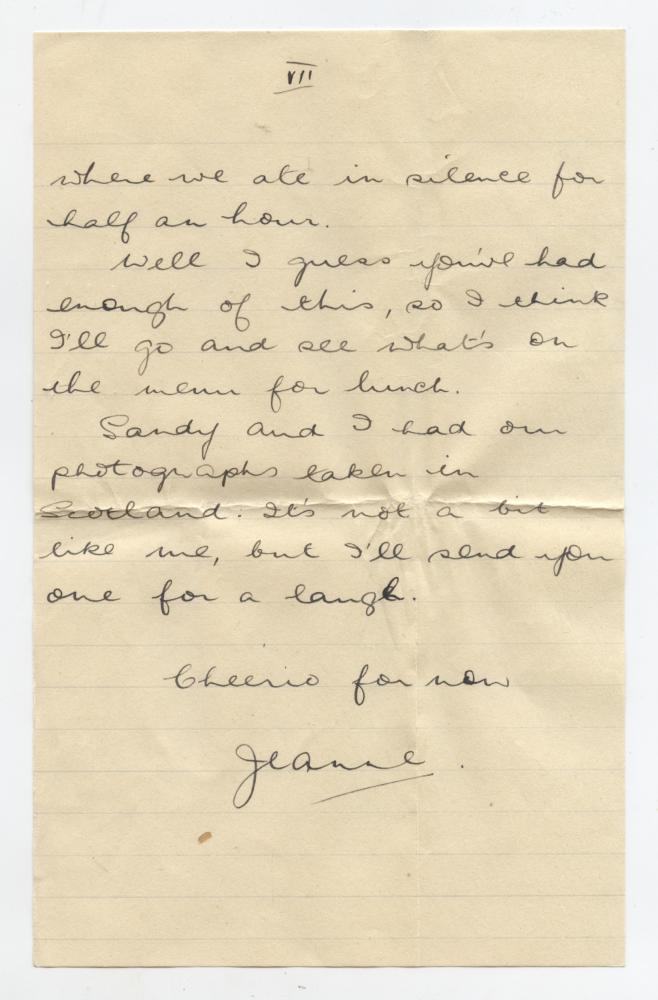 VII
where we ate in silence for
half an hour.
Well I guess you've had
enough of this, so I think
I'll go and see what's on
the menu for lunch.
Sandy and I had our
photographs taken in
Scotland. It's not a bit
like me, but I'll send you
one for a laugh.
Cheerio for now
Jeanne.